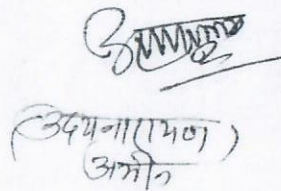 (उदयनारायण)
अमीन